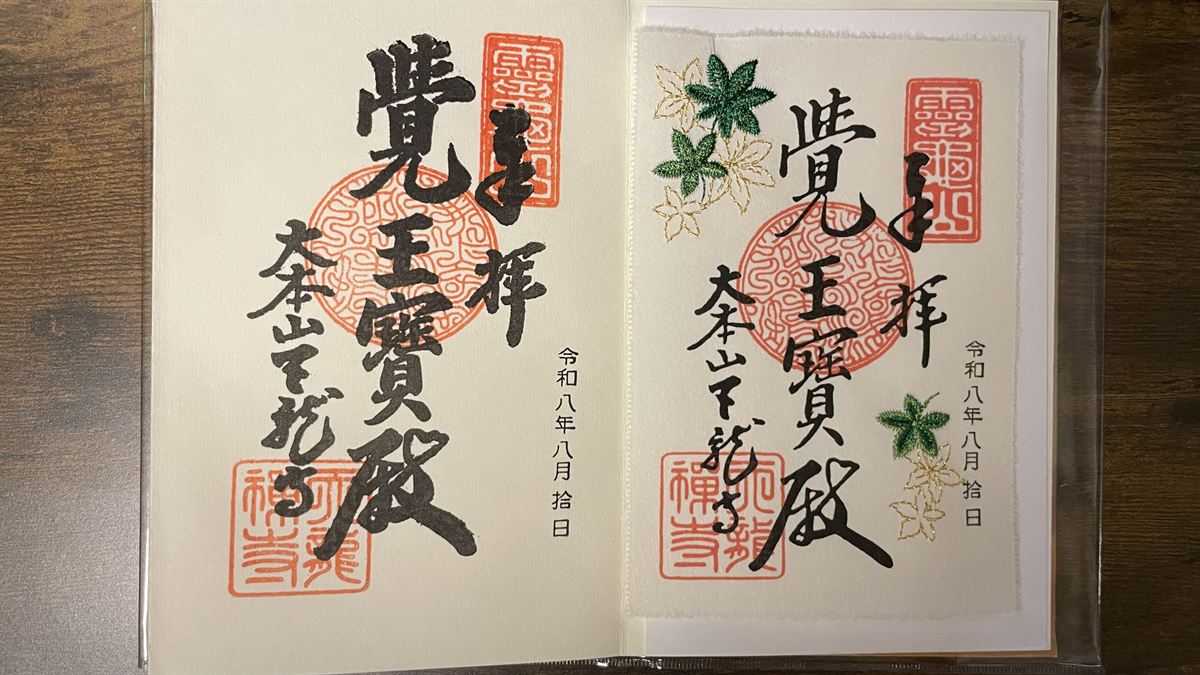 靈龜山
奉拝
令和八年八月拾日
覺王寶殿
大本山天龍寺
天龍禪寺
靈龜山
奉拝
令和八年八月拾日
覺王寶殿
大本山天龍寺
天龍禪寺